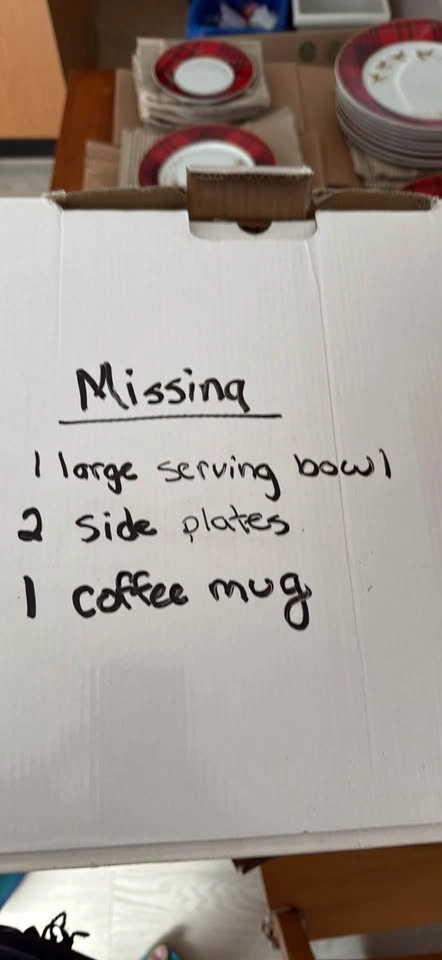 Missing
1 large serving bowl
2 side plates
1 coffee mug